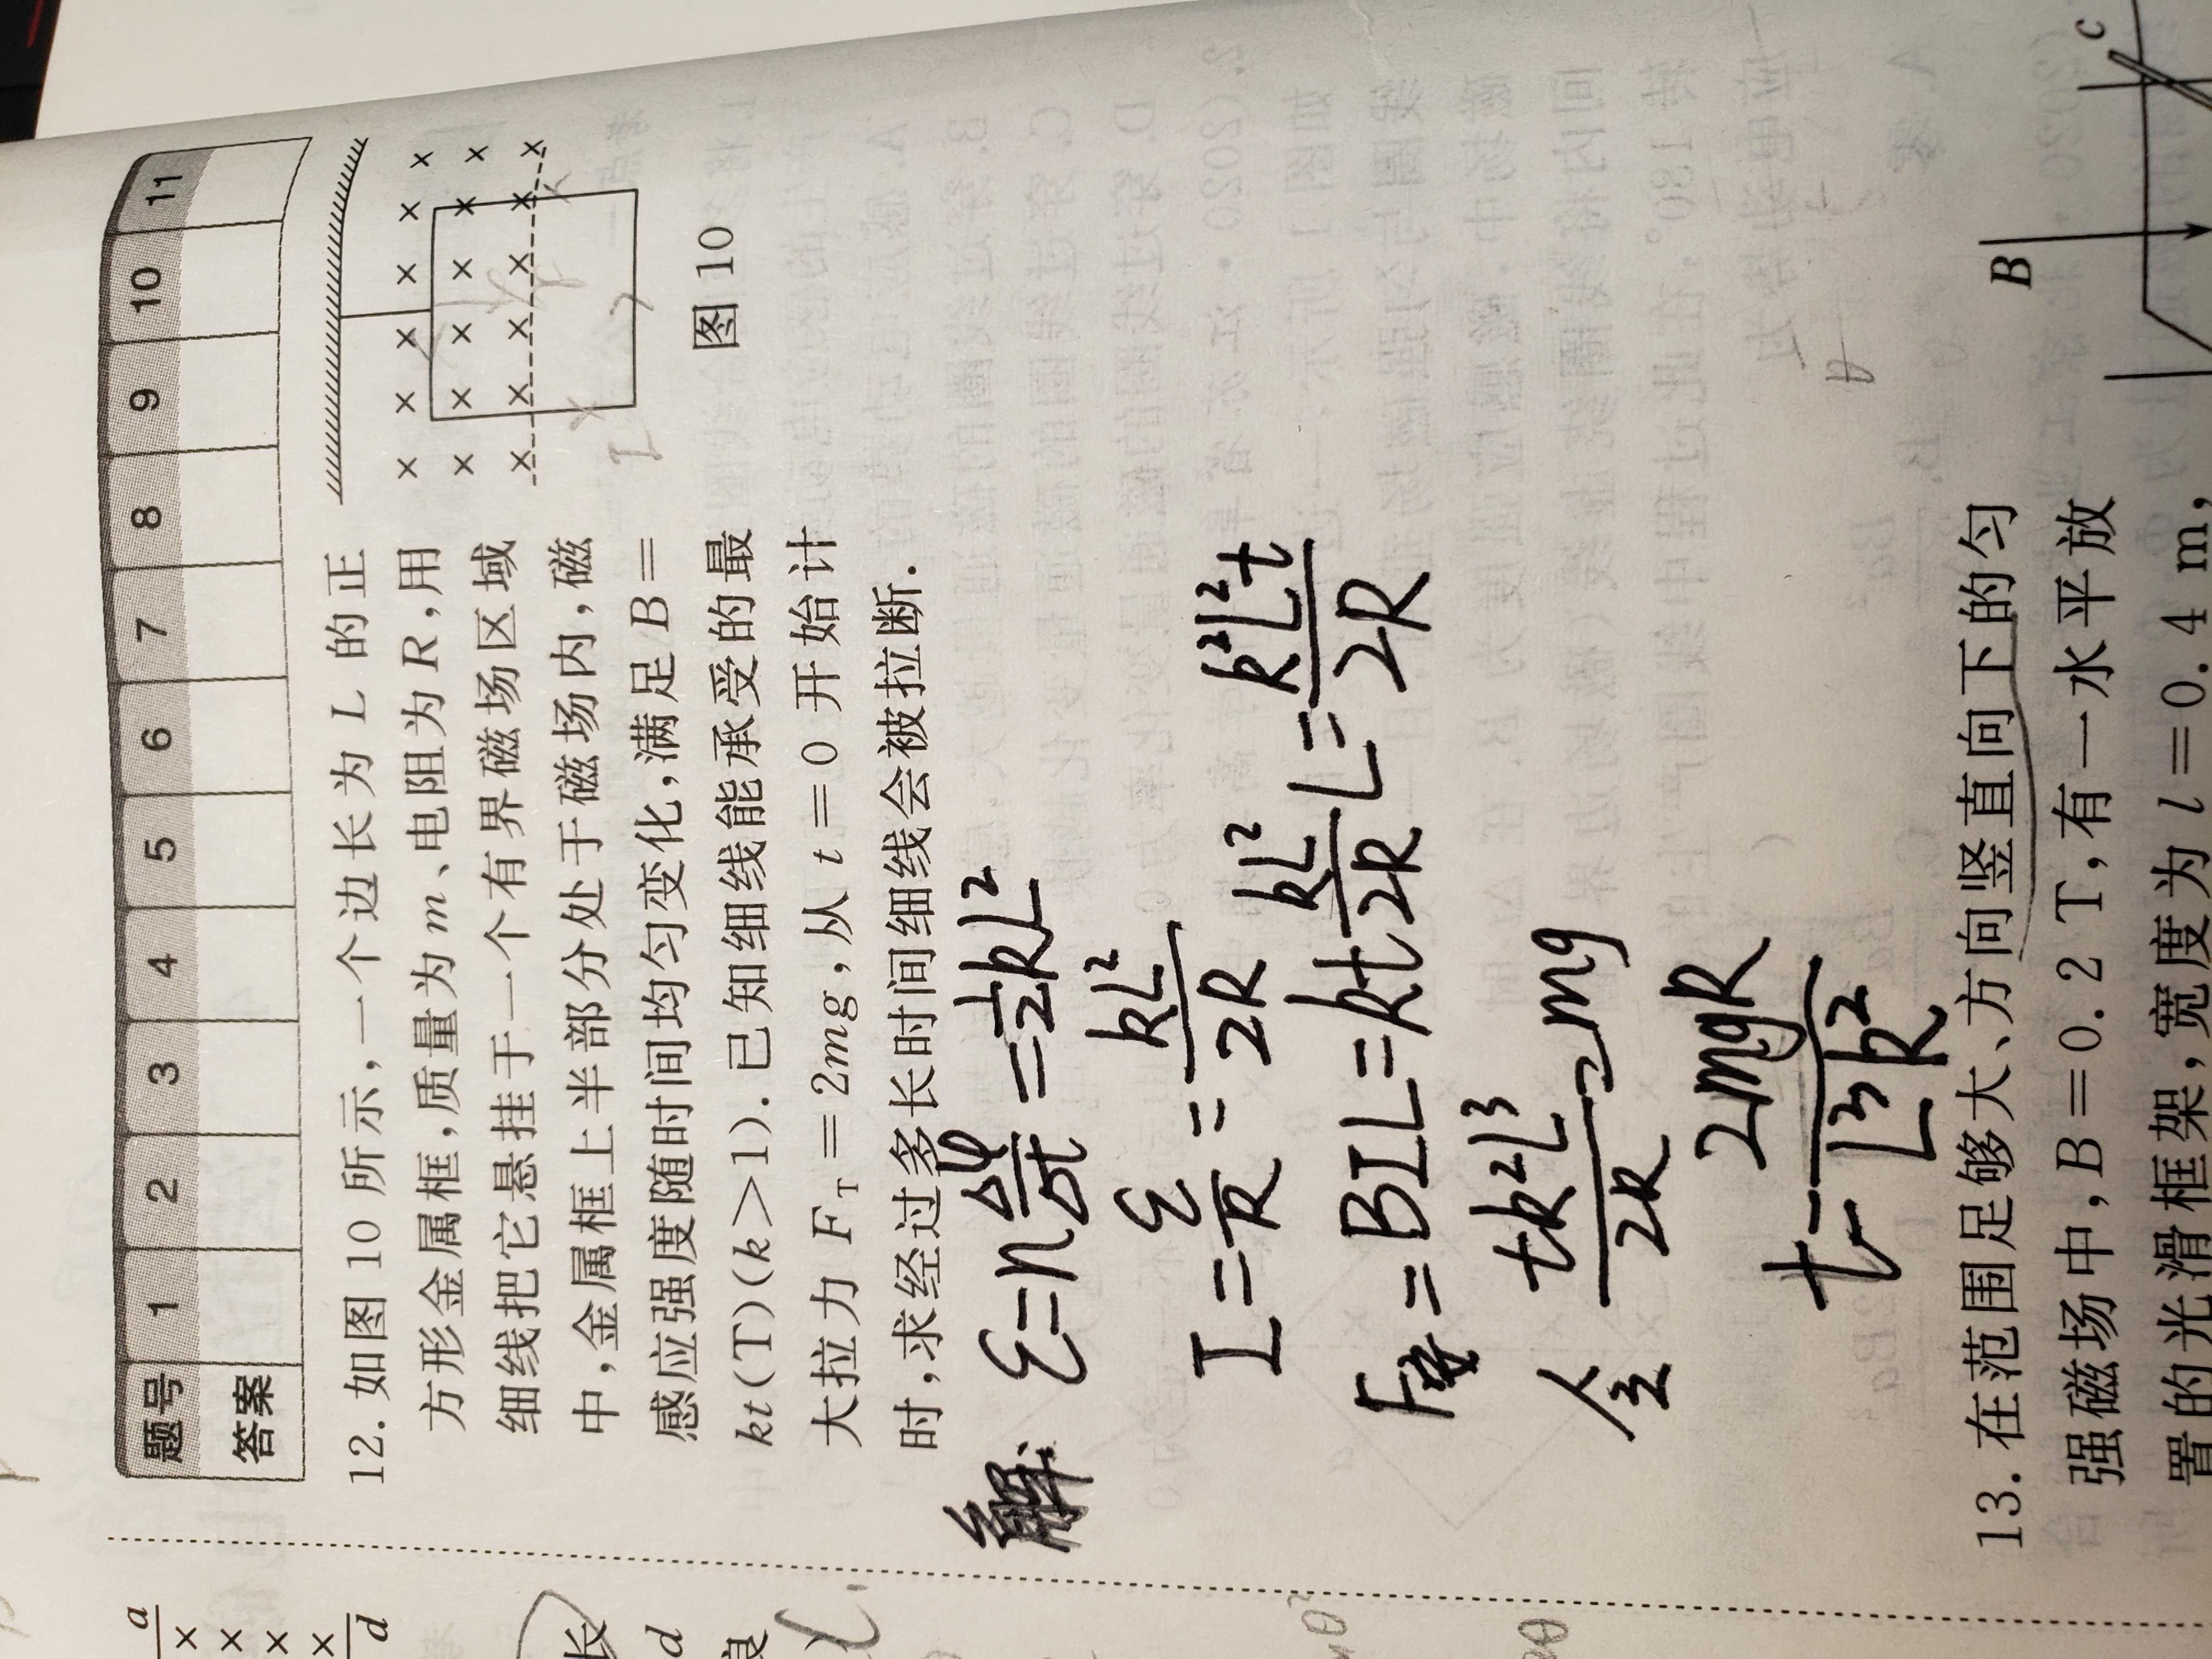 题号 1 2 3 4 5 6 7 8 9 10 11
答案
12. 如图 10 所示,一个边长为 L 的正
方形金属框,质量为 m、电阻为 R,用
细线把它悬挂于一个有界磁场区域
中,金属框上半部分处于磁场内,磁
感应强度随时间均匀变化,满足 B=
kt(T)(k>1). 已知细线能承受的最
大拉力 F_T=2mg,从 t=0 开始计
时,求经过多长时间细线会被拉断.
图 10
解: ε=n ΔΦ/Δt =1/2 kL²
I= ε/R = kL²/2R
F安=BIL=kt kL²/2R L= k²L²t/2R
令 tk²L³/2R = mg
t= 2mgR/L³k²
13. 在范围足够大、方向竖直向下的匀
强磁场中,B=0.2 T,有一水平放
置的光滑框架,宽度为 l=0.4 m,
B
c
a
× × × ×
d
长
d
良